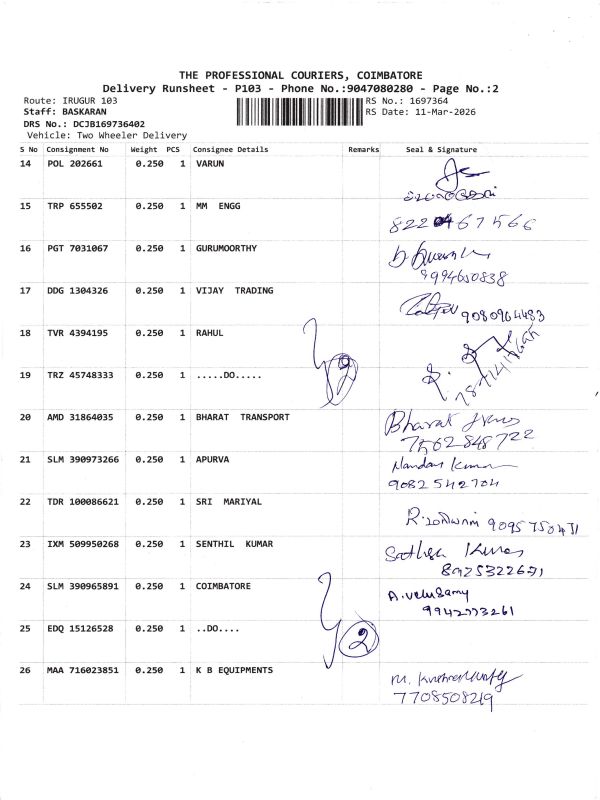 THE PROFESSIONAL COURIERS, COIMBATORE
Delivery Runsheet - P103 - Phone No.:9047080280 - Page No.:2
Route: IRUGUR 103
RS No.: 1697364
Staff: BASKARAN
RS Date: 11-Mar-2026
DRS No.: DCJB169736402
Vehicle: Two Wheeler Delivery
S No Consignment No Weight PCS Consignee Details Remarks Seal & Signature
14 POL 202661 0.250 1 VARUN
15 TRP 655502 0.250 1 MM ENGG
16 PGT 7031067 0.250 1 GURUMOORTHY
9994650838
17 DDG 1304326 0.250 1 VIJAY TRADING
9080964483
18 TVR 4394195 0.250 1 RAHUL
19 TRZ 45748333 0.250 1 .....DO.....
2
20 AMD 31864035 0.250 1 BHARAT TRANSPORT Bharat
7562848722
21 SLM 390973266 0.250 1 APURVA Nandan Kumar
9082542704
22 TDR 100086621 0.250 1 SRI MARIYAL
23 IXM 509950268 0.250 1 SENTHIL KUMAR
8925322671
24 SLM 390965891 0.250 1 COIMBATORE A.velusamy
9942773261
25 EDQ 15126528 0.250 1 ..DO....
2
26 MAA 716023851 0.250 1 K B EQUIPMENTS
7708508219